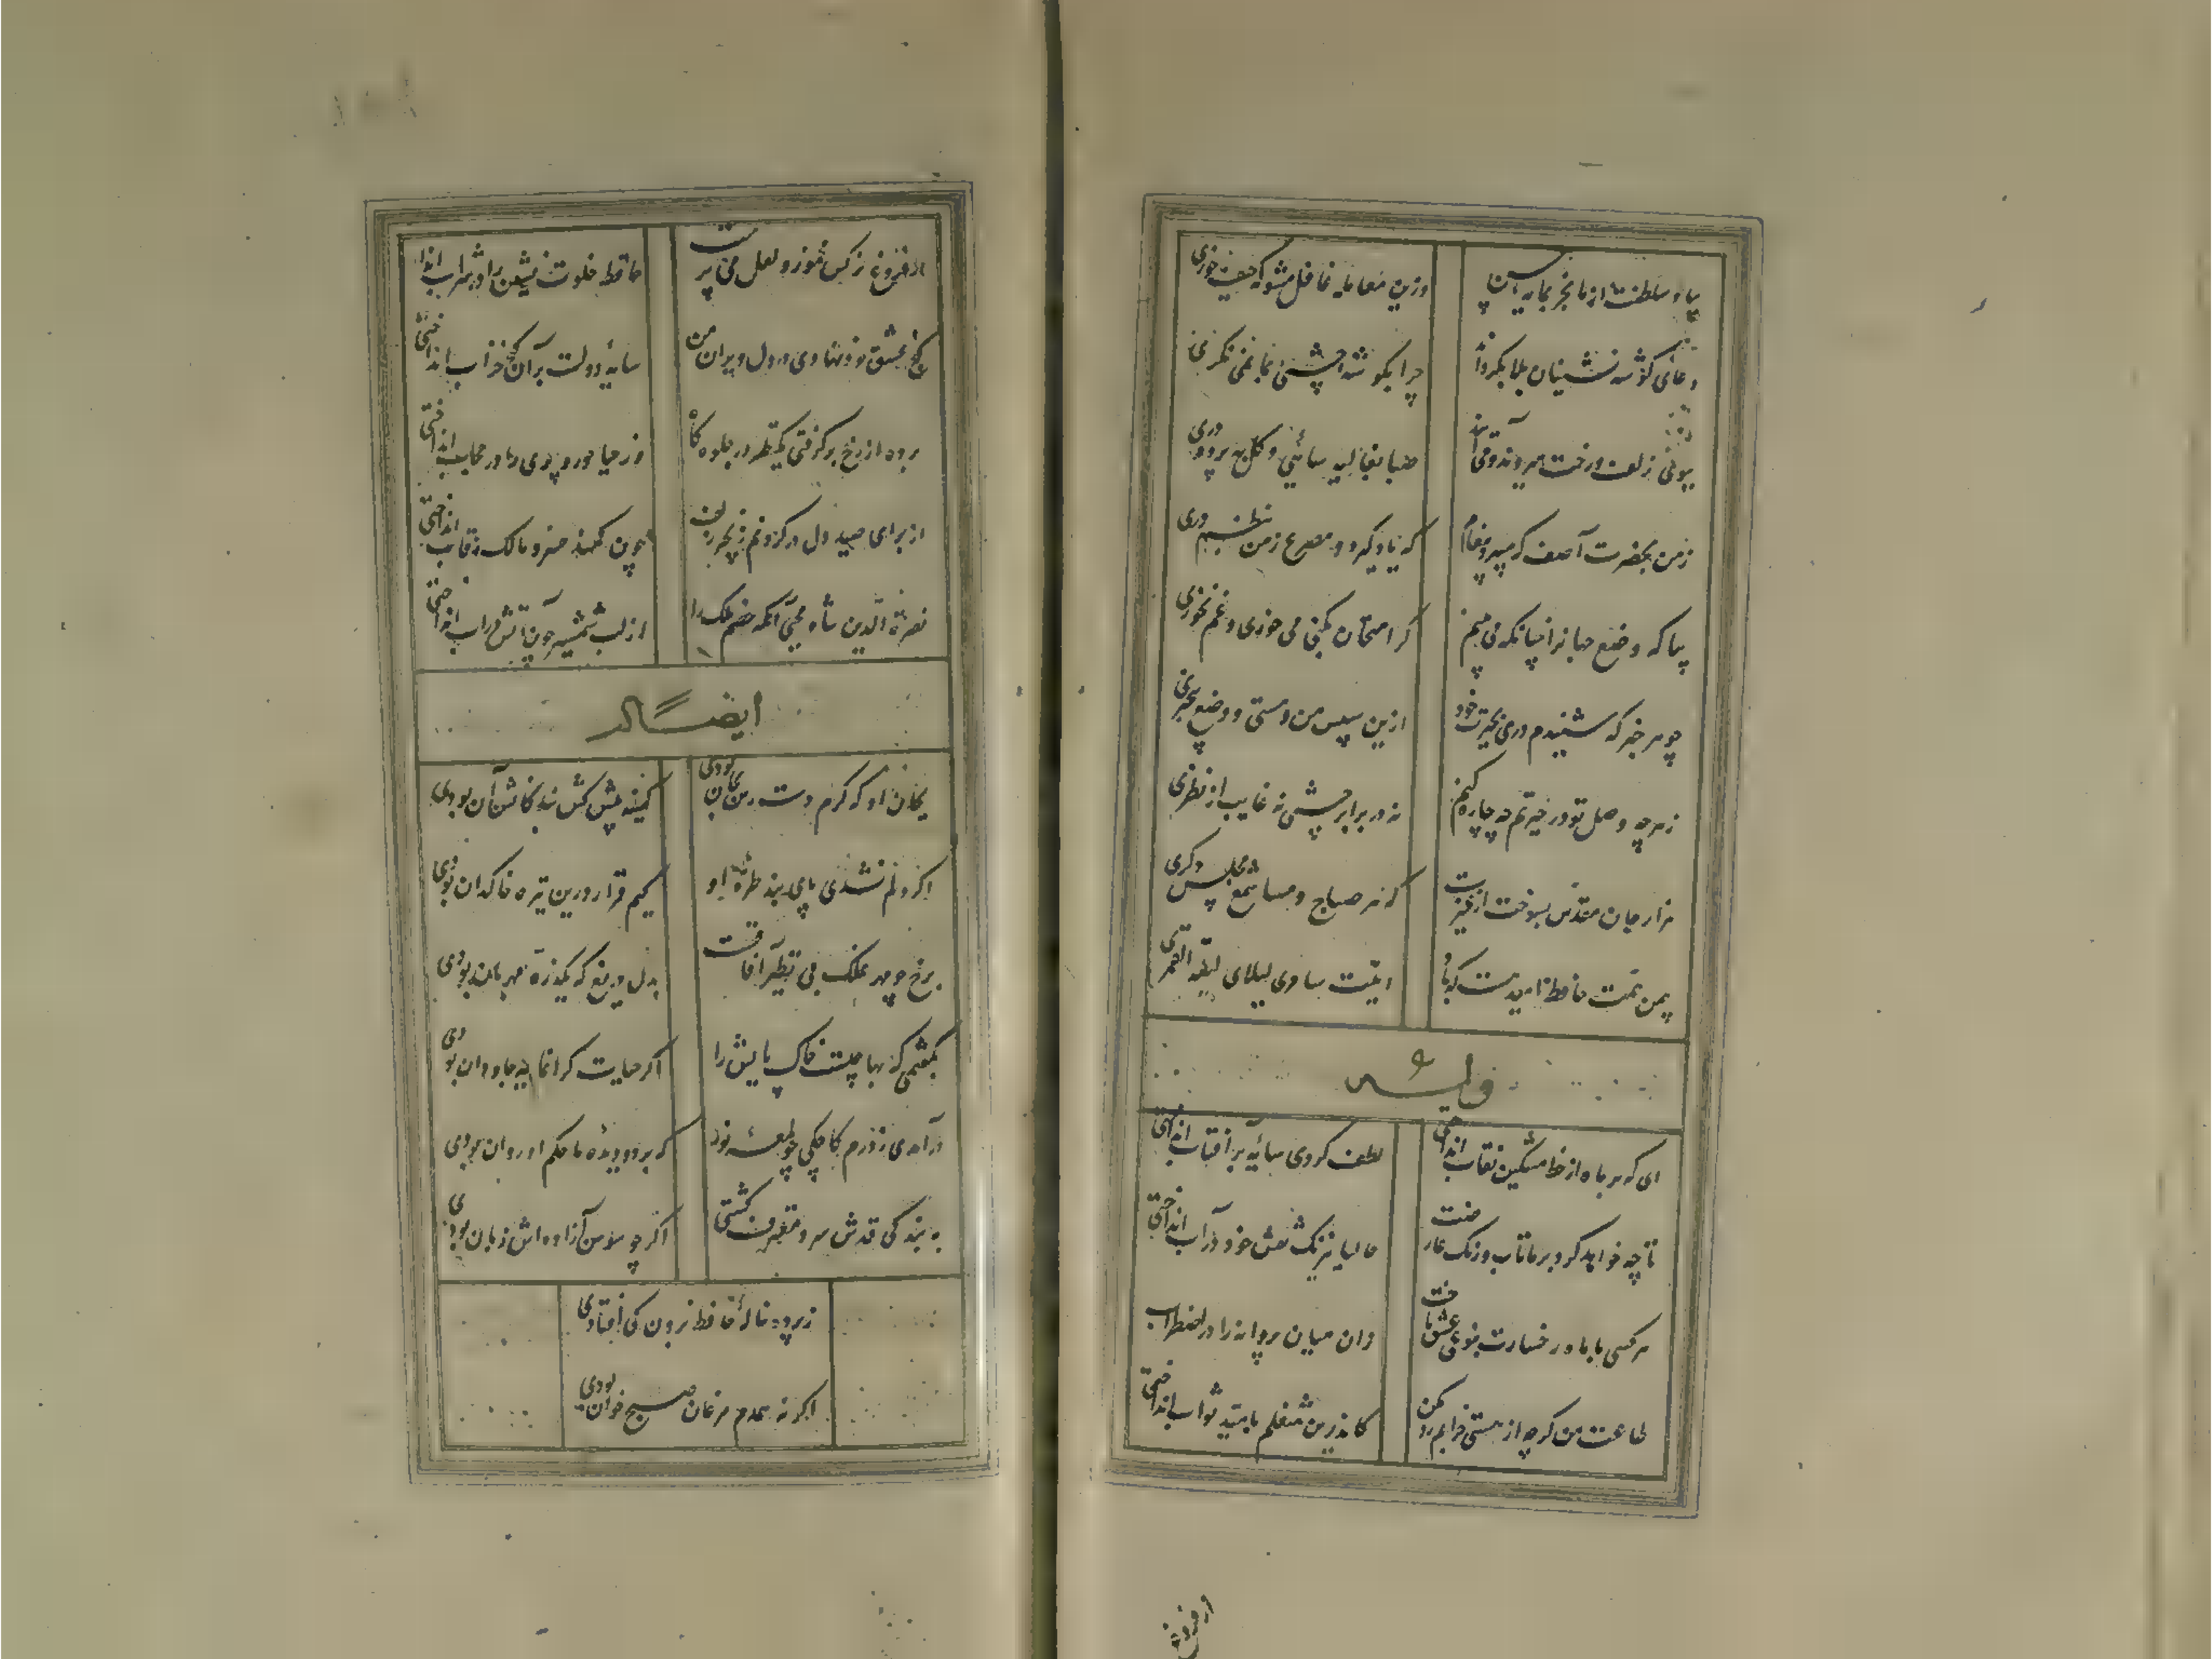 بیا و سلطنت از ما بخر بمایه حسن
وزین معامله غافل مشو که حیف خوری
دعای گوشه نشینان بلا بگرداند
چرا بگوشه چشمی بما نمی نگری
ببوی زلف و رخت میروند و می آیند
صبا بغالیه سائی و گل بپرده دری
ز من بحضرت آصف که میبرد پیغام
که یاد گیرد دو مصرع ز من بنظم دری
بیا که وضع جهانرا چنانکه می بینم
گر امتحان بکنی می خوری و غم نخوری
چو هر خبر که شنیدم دری بحیرت خود
ازین سپس من و مستی و وضع بیخبری
ز هرچه وصل تو در حیرتم چه چاره کنم
نه در برابر چشمی نه غایب از نظری
هزار جان مقدس بسوخت از غیرت
که هر صباح و مسا شمع مجلس دگری
بیمن همت حافظ امیدست که باز
لیلای لیلة القمری
وله
ای که بر ماه از خط مشکین نقاب انداختی
لطف کردی سایه بر آفتاب انداختی
تا چه خواهد کرد بر ما تاب و رنگ عارضت
حالیا نیرنگ نقش خود در آب انداختی
هر کسی با ماه رخسارت بنوعی عشق باخت
زان میان پروانه را در اضطراب
طاعت من گرچه از مستی خرابم رد مکن
کاندرین شغلم بامید ثواب انداختی
از فروغ
از فروغ نرگس مخمور و لعل می پرست
حافظ خلوت نشین را در شراب اندا
گنج عشق خود نهادی در دل ویران من
سایه دولت بر آن گنج خراب انداختی
پرده از رخ برگرفتی یکنظر در جلوه گاه
وز حیا حور و پری را در حجاب انداختی
از برای صید دل در گردنم زنجیر زلف
چون کمند خسرو مالک رقاب انداختی
نصرة الدین شاه یحیی آنکه خصم ملک را
از لب شمشیر چون آتش در آب انداختی
ایضاً له
بجان او که گرم دسترس بجان بودی
کمینه پیش کش بندگانش آن بودی
اگر دلم نشدی پای بند طره او
کیم قرار درین تیره خاکدان بودی
برخ چو مهر فلک بی نظیر آفاقست
بدل دریغ که یکذره مهربان بودی
بگفتمی که بها چیست خاک پایش را
اگر حیات گرانمایه جاودان بودی
درآمدی ز درم کاجکی چو لمعه نور
که بر دو دیده ما حکم او روان بودی
به بندگی قدش سرو معترف گشتی
اگر چو سوسن آزاده اش زبان بودی
ز پرده ناله حافظ برون کی افتادی
اگر نه همدم مرغان صبح خوان بودی